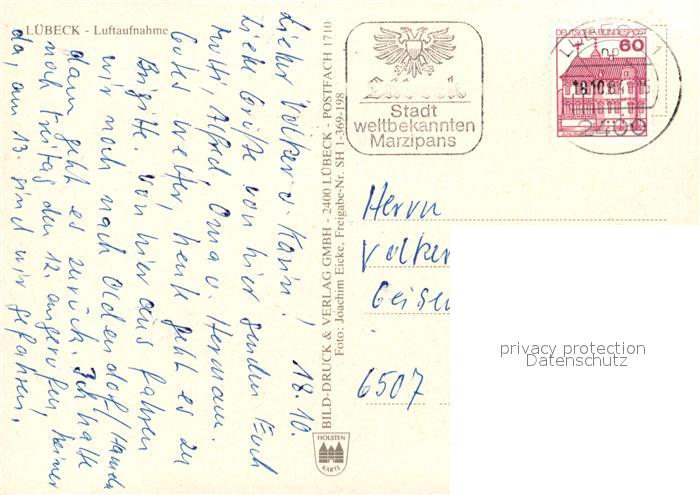 LÜBECK - Luftaufnahme
18.10.
Lieber Volker u. Karin!
Liebe Grüße von hier senden Euch
Mutti, Alfred, Oma u. Hermann.
Gutes Wetter, heute geht es zu
Brigitte. Von hier aus fahren
wir noch nach Oldendorf/
dann geht es zurück. Ich hatte
noch Freitag den 12. angerufen, keiner
da, am 13. sind wir gefahren.
BILD-DRUCK & VERLAG GMBH - 2400 LÜBECK - POSTFACH 1710
Foto: Joachim Eicke, Freigabe-Nr. SH 1-369-198
HOLSTEN-
KARTE
Lübeck
Stadt
weltbekannten
Marzipans
DEUTSCHE BUNDESPOST
60
LÜBECK 1
18.10.84
2400
Herrn
Volker
Geisen
6507
privacy protection
Datenschutz